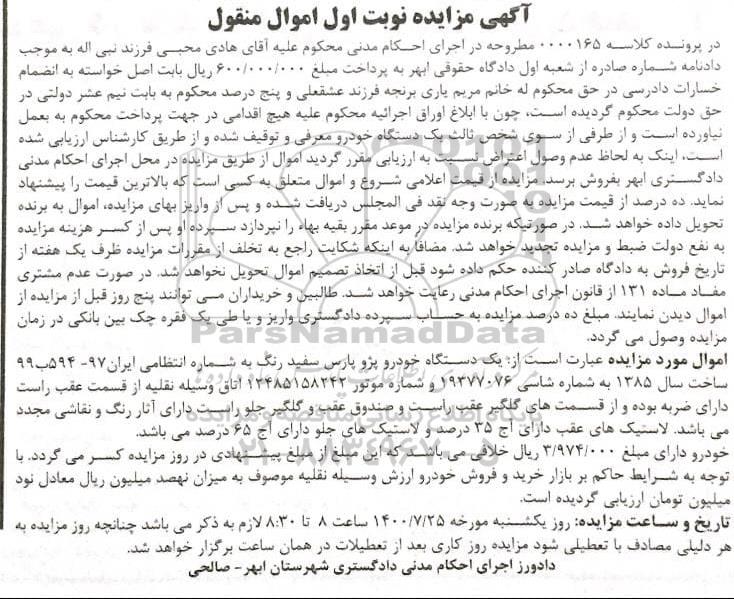 آگهی مزایده نوبت اول اموال منقول
در پرونده کلاسه ۰۰۰۰۱۶۵ مطروحه در اجرای احکام مدنی محکوم علیه آقای هادی محبی فرزند نبی اله به موجب
دادنامه شماره صادره از شعبه اول دادگاه حقوقی ابهر به پرداخت مبلغ ۶۰۰/۰۰۰/۰۰۰ ریال بابت اصل خواسته به انضمام
خسارات دادرسی در حق محکوم له خانم مریم یاری برنجه فرزند عشقعلی و پنج درصد محکوم به بابت نیم عشر دولتی در
حق دولت محکوم گردیده است، چون با ابلاغ اوراق اجرائیه محکوم علیه هیچ اقدامی در جهت پرداخت محکوم به بعمل
نیاورده است و از طرفی از سوی شخص ثالث یک دستگاه خودرو معرفی و توقیف شده و از طریق کارشناس ارزیابی شده
است، اینک به لحاظ عدم وصول اعتراض نسبت به ارزیابی مقرر گردید اموال از طریق مزایده در محل اجرای احکام مدنی
دادگستری ابهر بفروش برسد. مزایده از قیمت اعلامی شروع و اموال متعلق به کسی است که بالاترین قیمت را پیشنهاد
نماید. ده درصد از قیمت مزایده به صورت وجه نقد فی المجلس دریافت شده و پس از واریز بهای مزایده، اموال به برنده
تحویل داده خواهد شد. در صورتیکه برنده مزایده در موعد مقرر بقیه بهاء را نپردازد سپرده او پس از کسر هزینه مزایده
به نفع دولت ضبط و مزایده تجدید خواهد شد. مضافاً به اینکه شکایت راجع به تخلف از مقررات مزایده ظرف یک هفته از
تاریخ فروش به دادگاه صادر کننده حکم داده شود قبل از اتخاذ تصمیم اموال تحویل نخواهد شد. در صورت عدم مشتری
مفاد ماده ۱۳۱ از قانون اجرای احکام مدنی رعایت خواهد شد. طالبین و خریداران می توانند پنج روز قبل از مزایده از
اموال دیدن نمایند. مبلغ ده درصد مزایده به حساب سپرده دادگستری واریز و یا طی یک فقره چک بین بانکی در زمان
مزایده وصول می گردد.
اموال مورد مزایده عبارت است از: یک دستگاه خودرو پژو پارس سفید رنگ به شماره انتظامی ایران۹۷- ۵۹۴ب۹۹
ساخت سال ۱۳۸۵ به شماره شاسی ۱۹۳۷۷۰۷۶ و شماره موتور ۱۲۴۸۵۱۵۸۲۴۲ اتاق وسیله نقلیه از قسمت عقب راست
دارای ضربه بوده و از قسمت های گلگیر عقب راست و صندوق عقب و گلگیر جلو راست دارای آثار رنگ و نقاشی مجدد
می باشد. لاستیک های عقب دارای آج ۳۵ درصد و لاستیک های جلو دارای آج ۶۵ درصد می باشد.
خودرو دارای مبلغ ۳/۹۷۴/۰۰۰ ریال خلافی می باشد که این مبلغ از مبلغ پیشنهادی در روز مزایده کسر می گردد. با
توجه به شرایط حاکم بر بازار خرید و فروش خودرو ارزش وسیله نقلیه موصوف به میزان نهصد میلیون ریال معادل نود
میلیون تومان ارزیابی گردیده است.
تاریخ و ساعت مزایده: روز یکشنبه مورخه ۱۴۰۰/۷/۲۵ ساعت ۸ تا ۸:۳۰ لازم به ذکر می باشد چنانچه روز مزایده به
هر دلیلی مصادف با تعطیلی شود مزایده روز کاری بعد از تعطیلات در همان ساعت برگزار خواهد شد.
دادورز اجرای احکام مدنی دادگستری شهرستان ابهر- صالحی
ParsNamadData